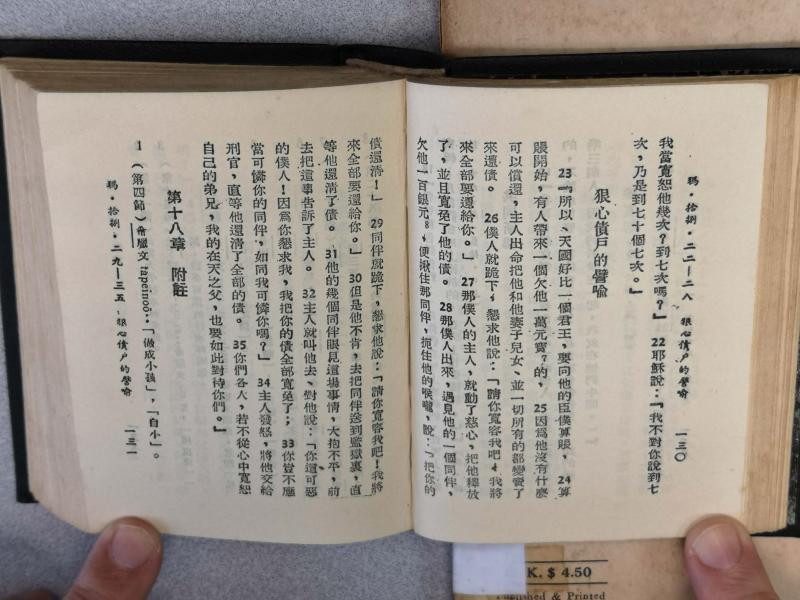 瑪·拾捌·二二—二八 狠心債戶的譬喻 一三〇
我當寬恕他幾次？到七次嗎？」 22耶穌說：「我不對你說到七
次，乃是到七十個七次。」
狠心債戶的譬喻
23「所以、天國好比一個君王，要向他的臣僕算賬， 24算
賬開始，有人帶來一個欠他一萬元寶7的， 25因爲他沒有什麽
可以償還，主人出命把他和他妻子兒女、並一切所有的都變賣了
來還債。 26僕人就跪下，懇求他說：「請你寬容我吧，我將
來全部要還給你。」 27那僕人的主人，就動了慈心，把他釋放
了，並且寬免了他的債。 28那僕人出來，遇見他的一個同伴，
欠他一百銀元8，便揪住那同伴，扼住他的喉嚨，說：「把你的
債還清！」 29同伴就跪下，懇求他說：「請你寬容我吧！我將
來全部要還給你。」 30但是他不肯，去把同伴送到監獄裏，直
等他還清了債。 31他的幾個同伴眼見這場事情，大抱不平，前
去把這事告訴了主人。 32主人就叫他去、對他說：「你這可惡
的僕人！因爲你懇求我，我把你的債全部寬免了； 33你豈不應
當可憐你的同伴，如同我可憐你嗎？」 34主人發怒，將他交給
刑官，直等他還清了全部的債。 35你們各人，若不從心中寬恕
自己的弟兄，我的在天之父，也要如此對待你們。」
第十八章 附註
1（第四節）希臘文 tapeinoō：「做成小孩」，「自小」。
瑪·拾捌·二九—三五 狠心債戶的譬喻 一三一
K. $ 4.50
Published & Printed